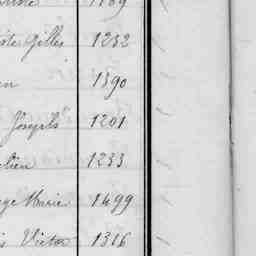 1789
Gilles 1232
en 1390
Joseph 1201
lien 1233
Marie 1499
Victor 1316